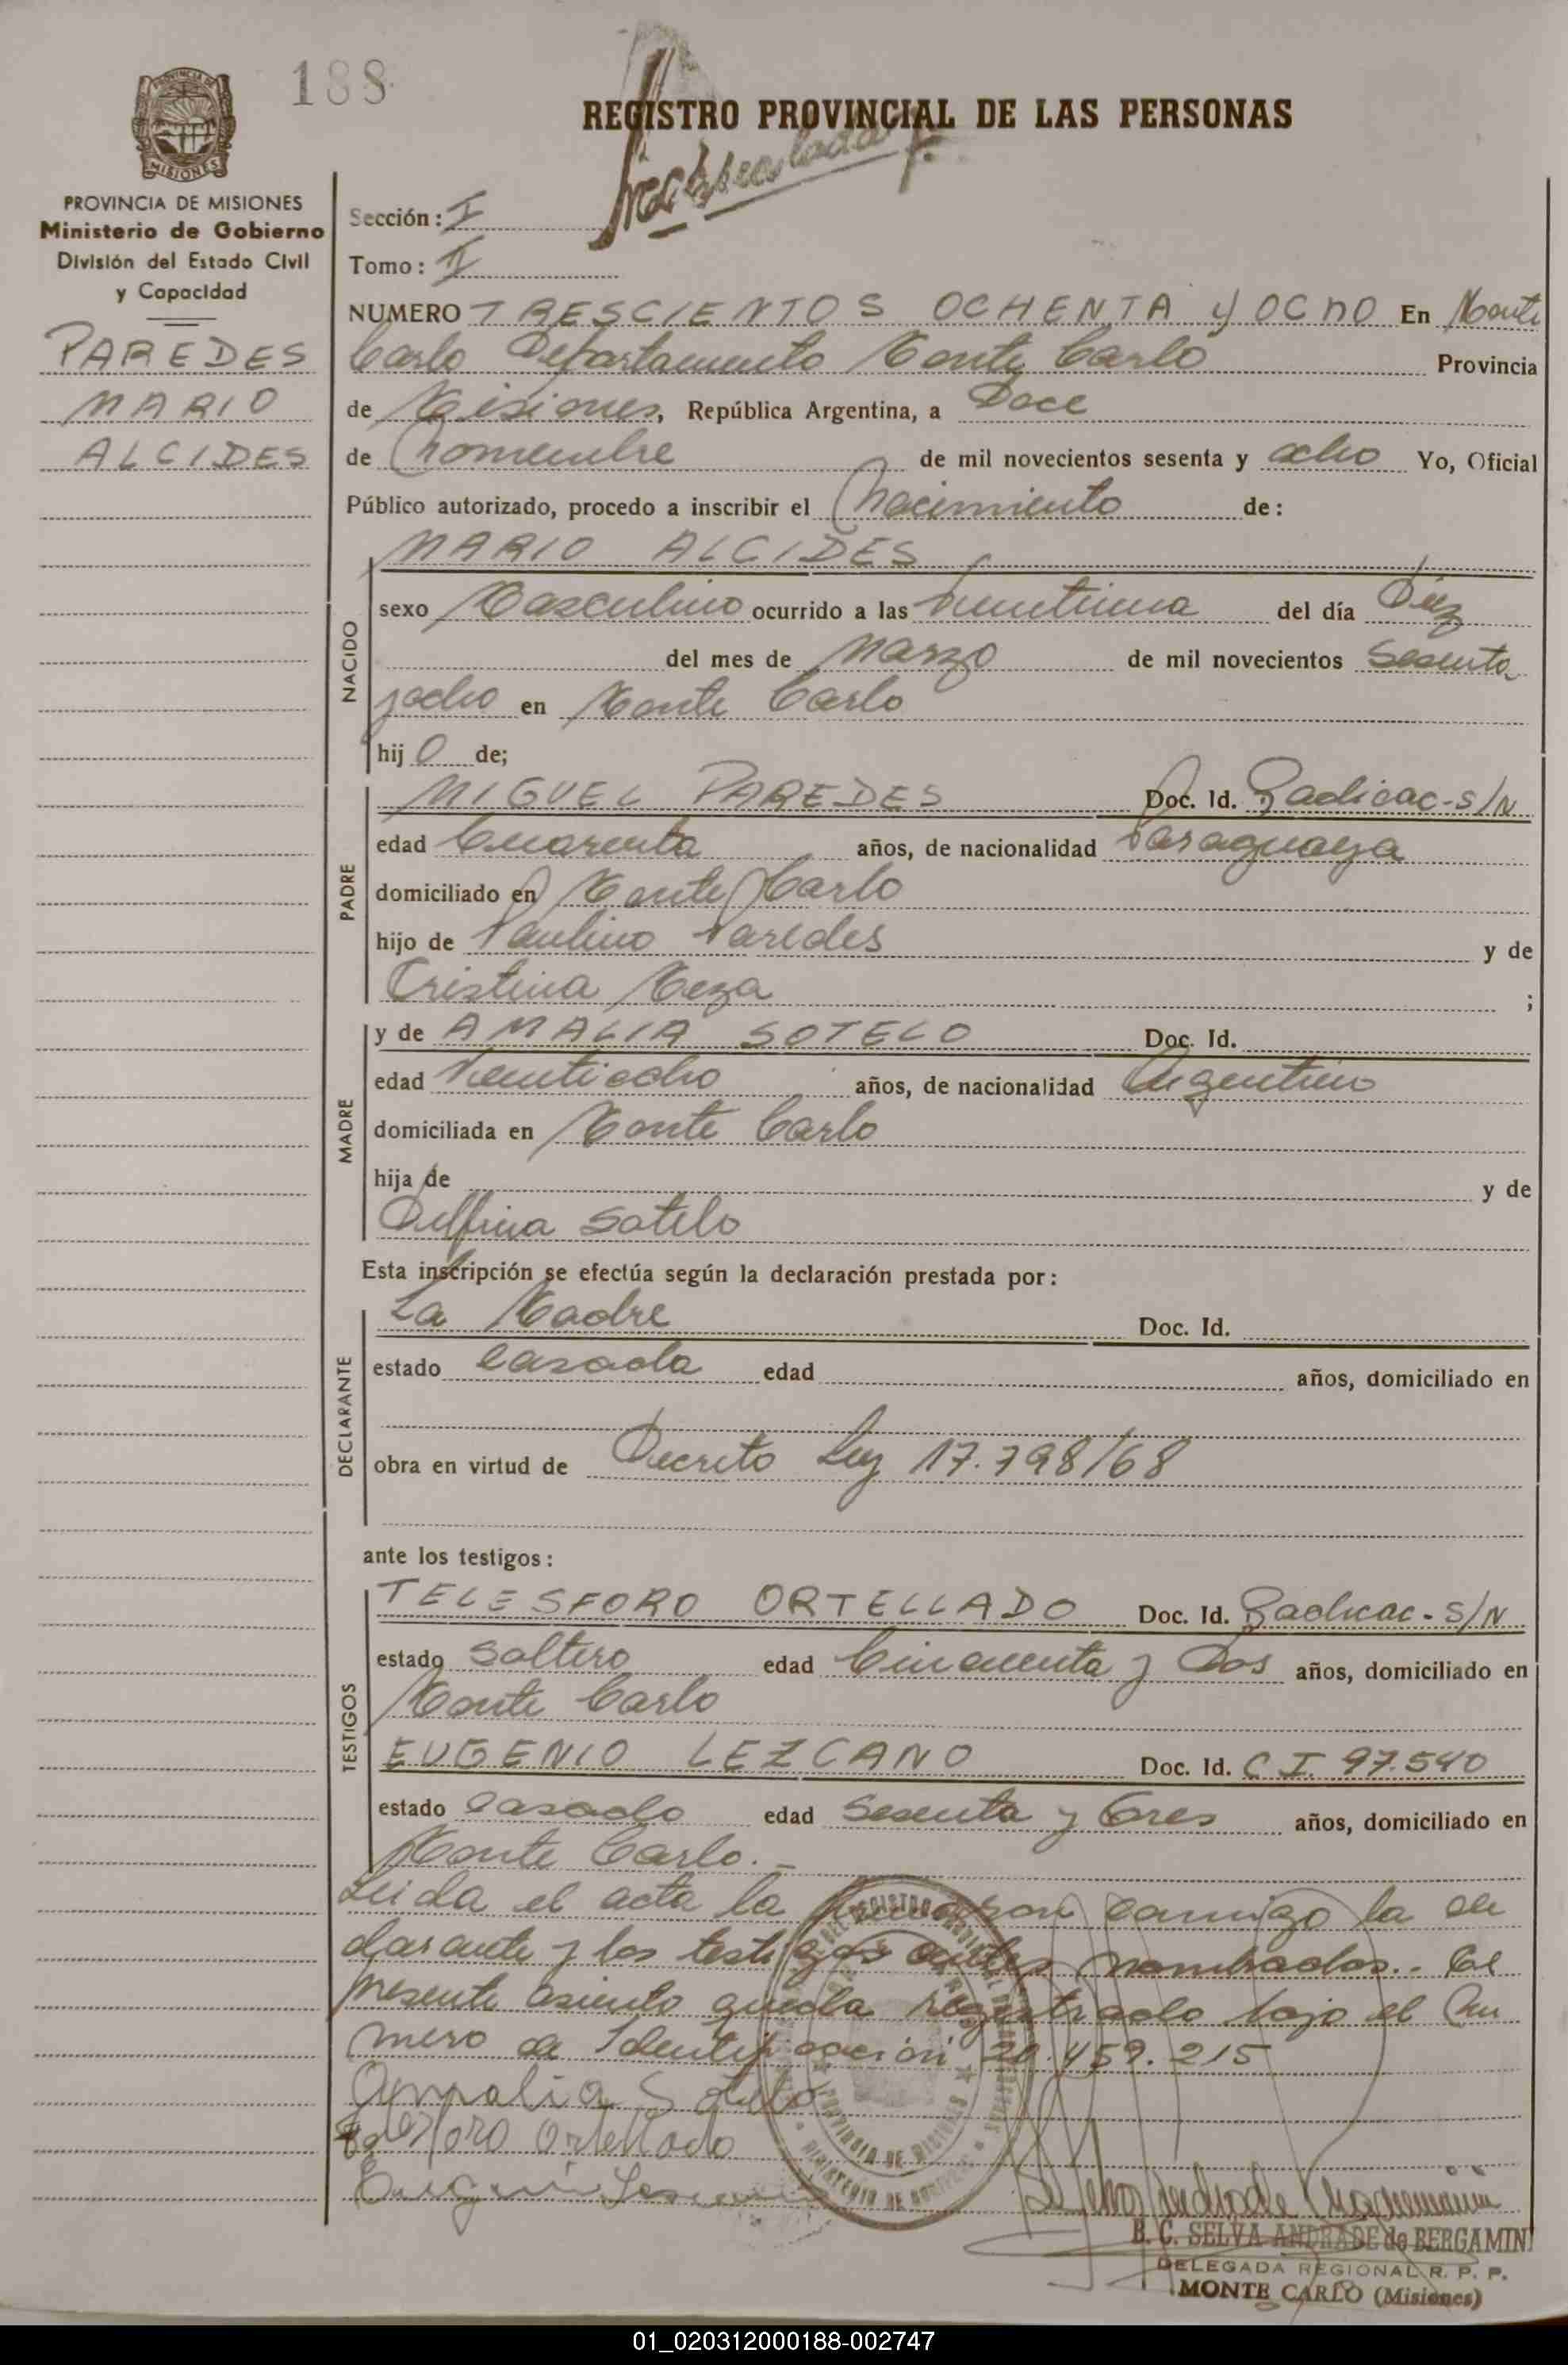 188
REGISTRO PROVINCIAL DE LAS PERSONAS
PROVINCIA DE MISIONES
MISIONES
PROVINCIA DE MISIONES
Ministerio de Gobierno
División del Estado Civil
y Capacidad
PAREDES
MARIO
ALCIDES
Sección: I
Tomo: II
NUMERO TRESCIENTOS OCHENTA y OCHO En Monte
Carlo Departamento Monte Carlo Provincia
de Misiones, República Argentina, a Doce
de Noviembre de mil novecientos sesenta y ocho Yo, Oficial
Público autorizado, procedo a inscribir el Nacimiento de:
NACIDO
MARIO ALCIDES
sexo Masculino ocurrido a las veintiuna del día Diez
del mes de Marzo de mil novecientos Sesenta
y ocho en Monte Carlo
hij o de;
PADRE
MIGUEL PAREDES Doc. Id. Radicac-S/N
edad Cuarenta años, de nacionalidad Paraguaya
domiciliado en Monte Carlo
hijo de Paulino Paredes y de
Cristina Meza ;
MADRE
y de AMALIA SOTELO Doc. Id.
edad Veintiocho años, de nacionalidad Argentina
domiciliada en Monte Carlo
hija de y de
Delfina Sotelo
Esta inscripción se efectúa según la declaración prestada por:
DECLARANTE
La Madre Doc. Id.
estado Casada edad años, domiciliado en
obra en virtud de Decreto Ley 17.798/68
ante los testigos:
TESTIGOS
TELESFORO ORTELLADO Doc. Id. Radicac-S/N
estado Soltero edad Cincuenta y Dos años, domiciliado en
Monte Carlo
EUGENIO LEZCANO Doc. Id. C.I. 97.540
estado Casado edad Sesenta y Tres años, domiciliado en
Monte Carlo.-
Leida el acta la firmaron conmigo la de
clarante y los testigos antes nombrados.- El
presente asiento queda registrado bajo el Nu
mero de Identificación 20.459.215
Amalia Sotelo
Telesforo Ortellado
B. C. SELVA ANDRADE de BERGAMIN
DELEGADA REGIONAL R. P. P.
MONTE CARLO (Misiones)
01_020312000188-002747